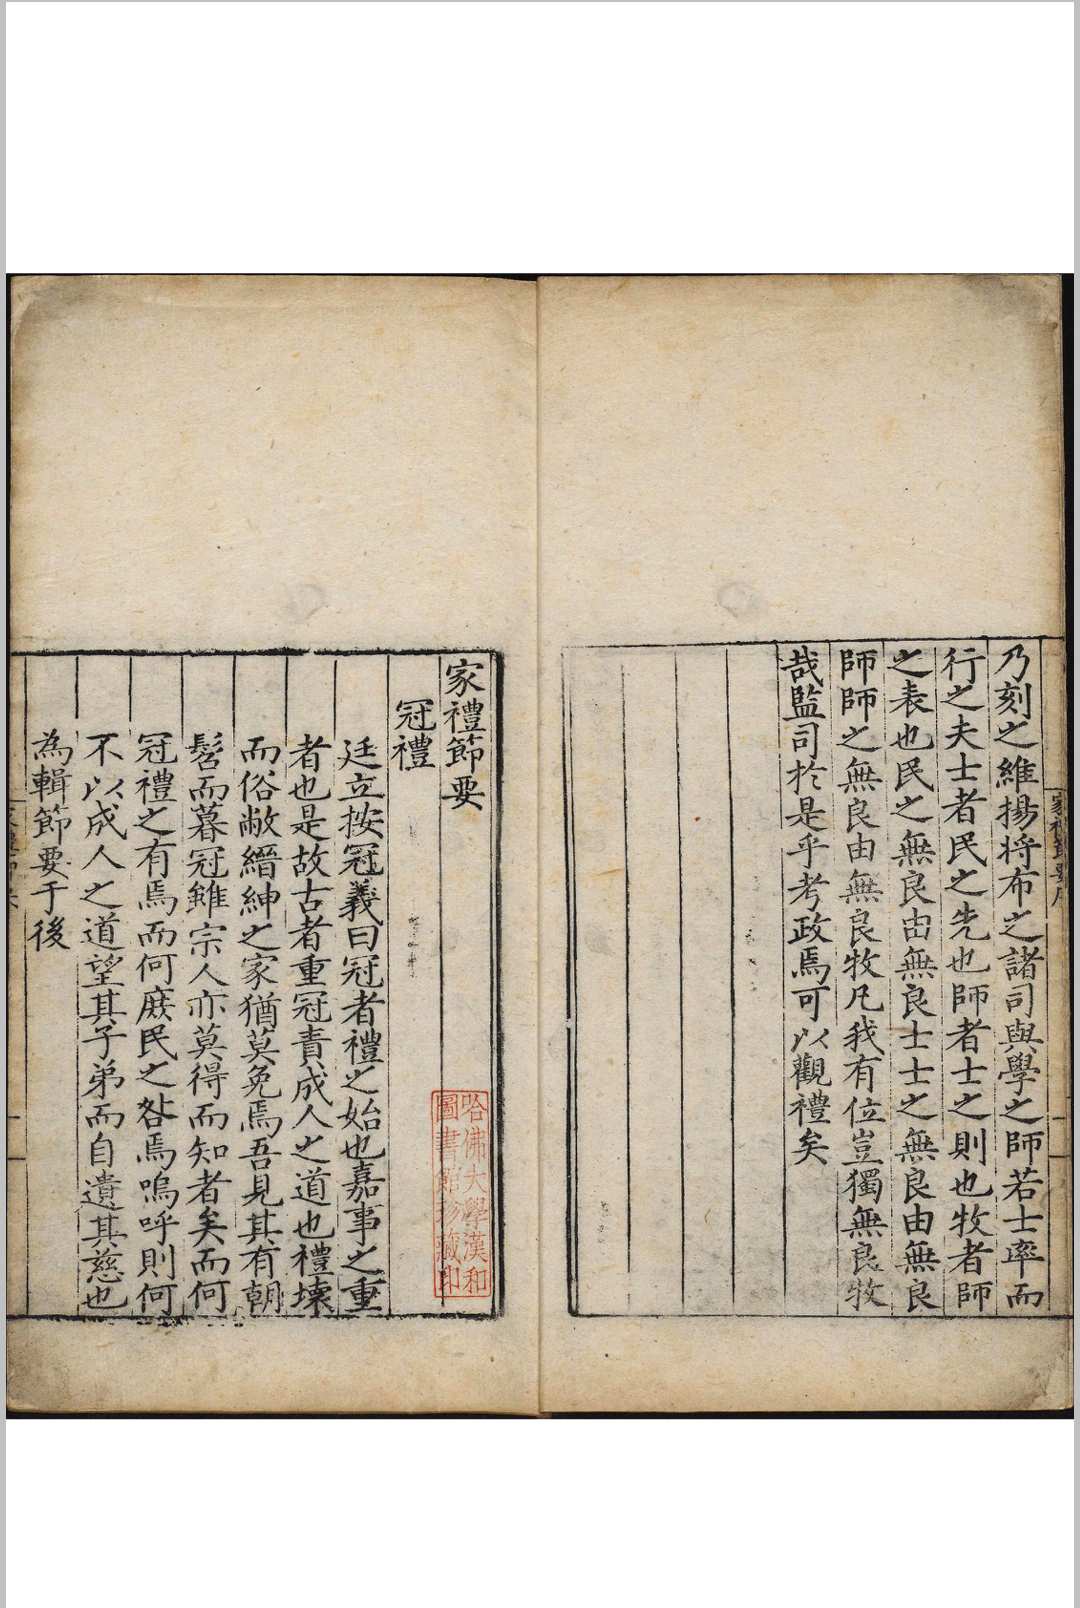 乃刻之維揚將布之諸司與學之師若士率而
行之夫士者民之先也師者士之則也牧者師
之表也民之無良由無良士士之無良由無良
師師之無良由無良牧凡我有位豈獨無良牧
哉監司於是乎考政焉可以觀禮矣
家禮節要
冠禮
廷立按冠義曰冠者禮之始也嘉事之重
者也是故古者重冠責成人之道也禮壞
而俗敝縉紳之家猶莫免焉吾見其有朝
髫而暮冠雖宗人亦莫得而知者矣而何
冠禮之有焉而何庶民之咎焉嗚呼則何
不以成人之道望其子弟而自遺其慈也
為輯節要于後
哈佛大學漢和
圖書館珍藏印